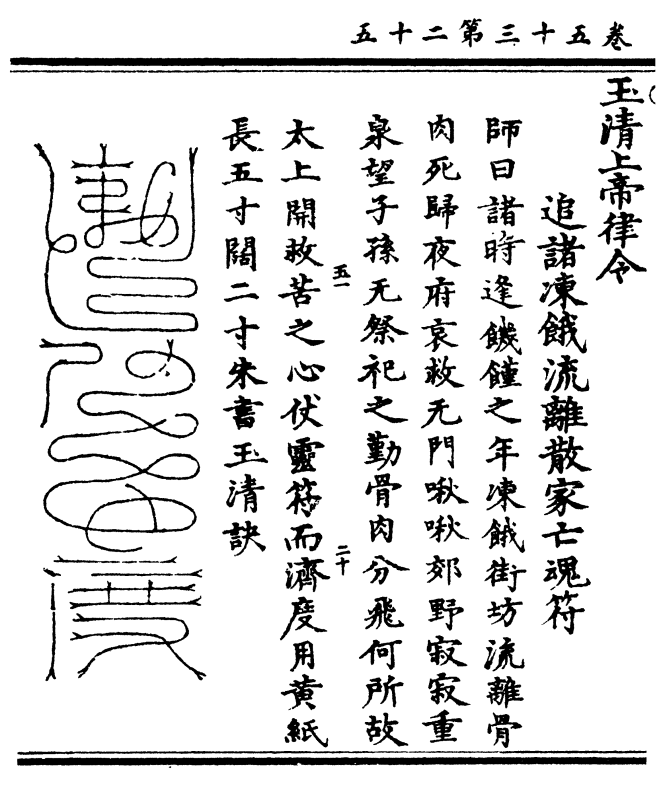 卷五十三第二十五
玉清上帝律令
追諸凍餓流離散家亡魂符
師曰諸時逢饑饉之年凍餓街坊流離骨
肉死歸夜府哀救无門啾啾郊野寂寂重
泉望子孫无祭祀之勤骨肉分飛何所故
五一
二十
太上開救苦之心伏靈符而濟度用黄紙
長五寸闊二寸朱書玉清訣